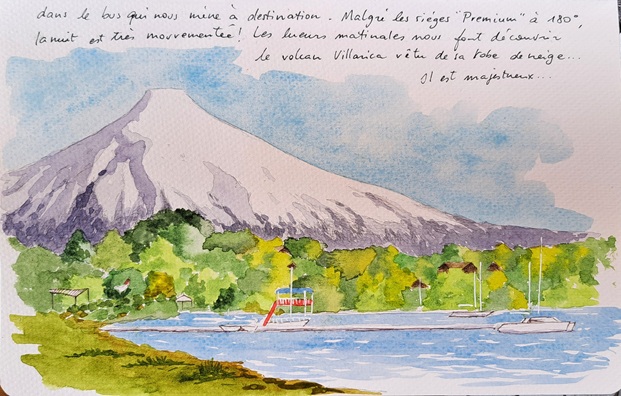 dans le bus qui nous mène à destination. Malgré les sièges "Premium" à 180°,
la nuit est très mouvementée! Les lueurs matinales nous font découvrir
le volcan Villarica vêtu de sa robe de neige...
Il est majestueux...